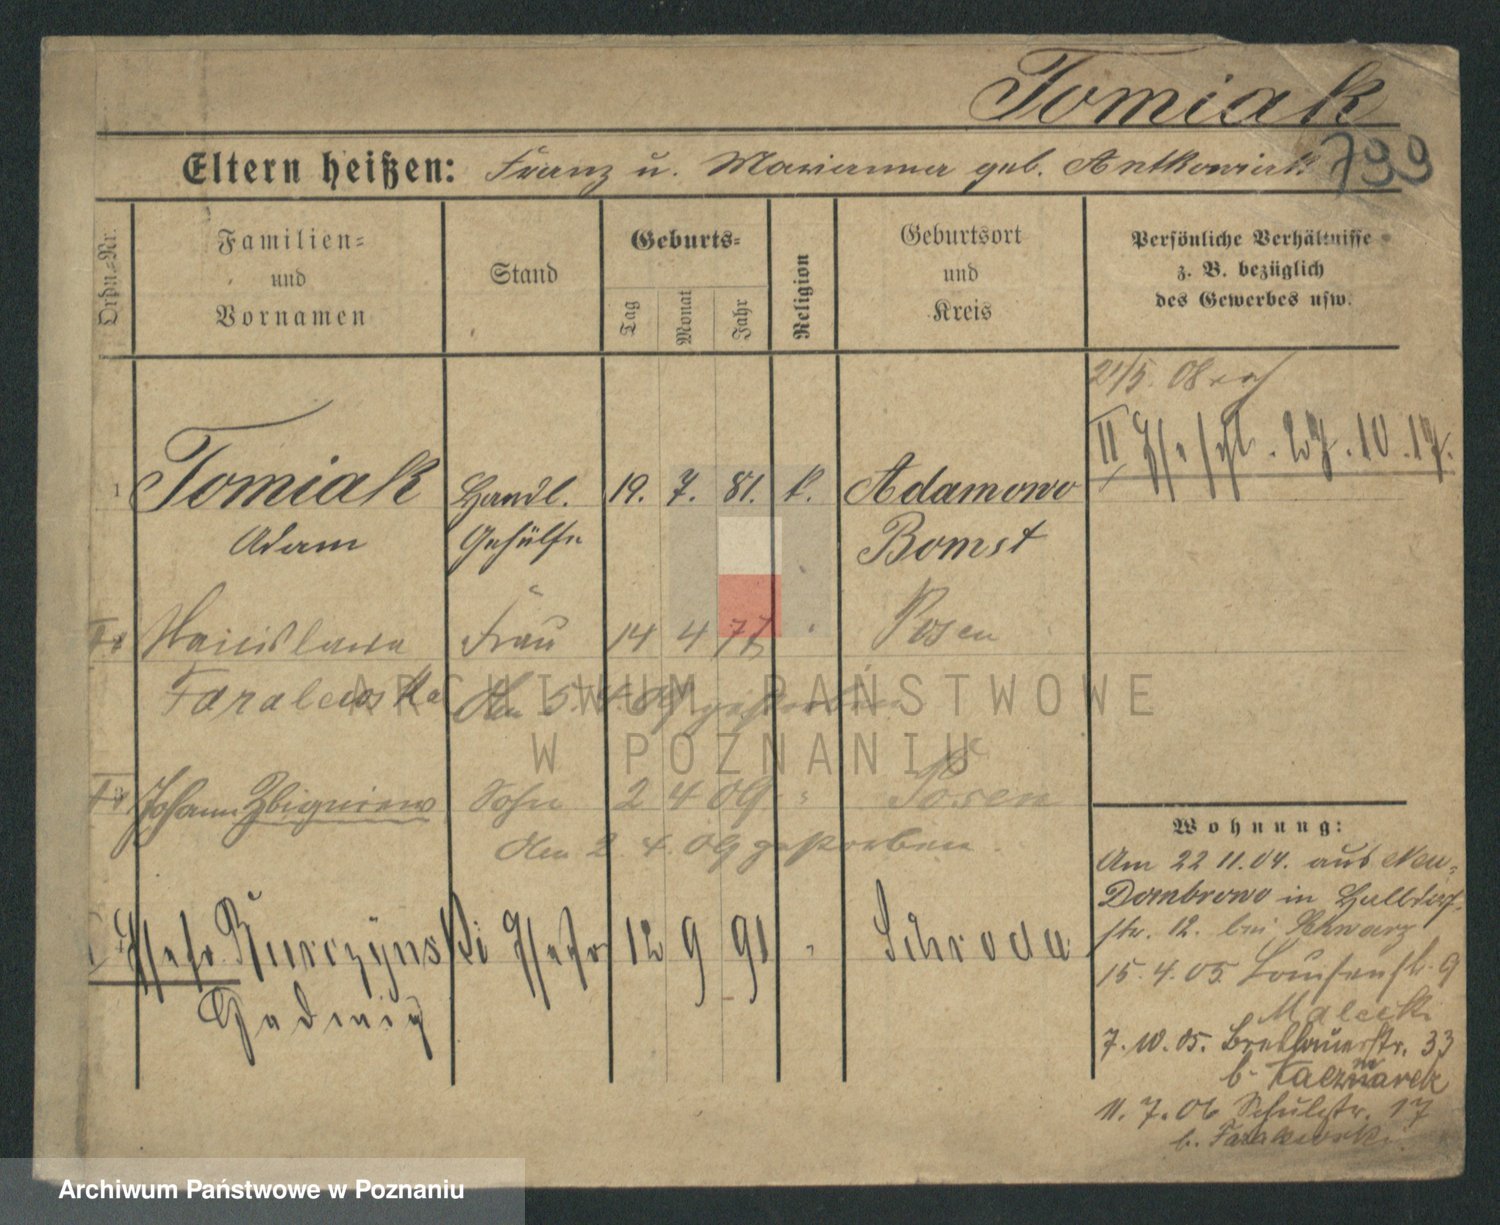 Tomiak
Eltern heißen: Franz u. Marianna geb. Antkowiak
799
Ordn.-Nr.
Familien-
und
Vornamen
Stand
Geburts-
Tag
Monat
Jahr
Religion
Geburtsort
und
Kreis
Persönliche Verhältnisse
z. B. bezüglich
des Gewerbes usw.
21/5. 08
II Ehe schl. 27. 10. 17.
1 Tomiak Handl. 19. 7. 81. k. Adamowo
Adam Gehülfe Bomst
Stanislawa Frau 14 4 77 Posen
Faralewska den 5. 4. 09 gestorben
Johann Zbigniew Sohn 2 4 09 " Posen
den 2. 4. 09 gestorben.
Ehefr. Kurczynski Ehefr 12 9 91 " Schroda
Hedwig
Wohnung:
Am 22 11. 04. aus Neu-
Dombrowo in Halldorf-
str. 12. bei Schwarz
15. 4. 05. Louisenstr. 9
Malecki
7. 10. 05. Breslauerstr. 33
b. Kaczmarek
11. 7. 06 Schulstr. 17
b. Faralewski
ARCHIWUM PAŃSTWOWE
W POZNANIU
Archiwum Państwowe w Poznaniu